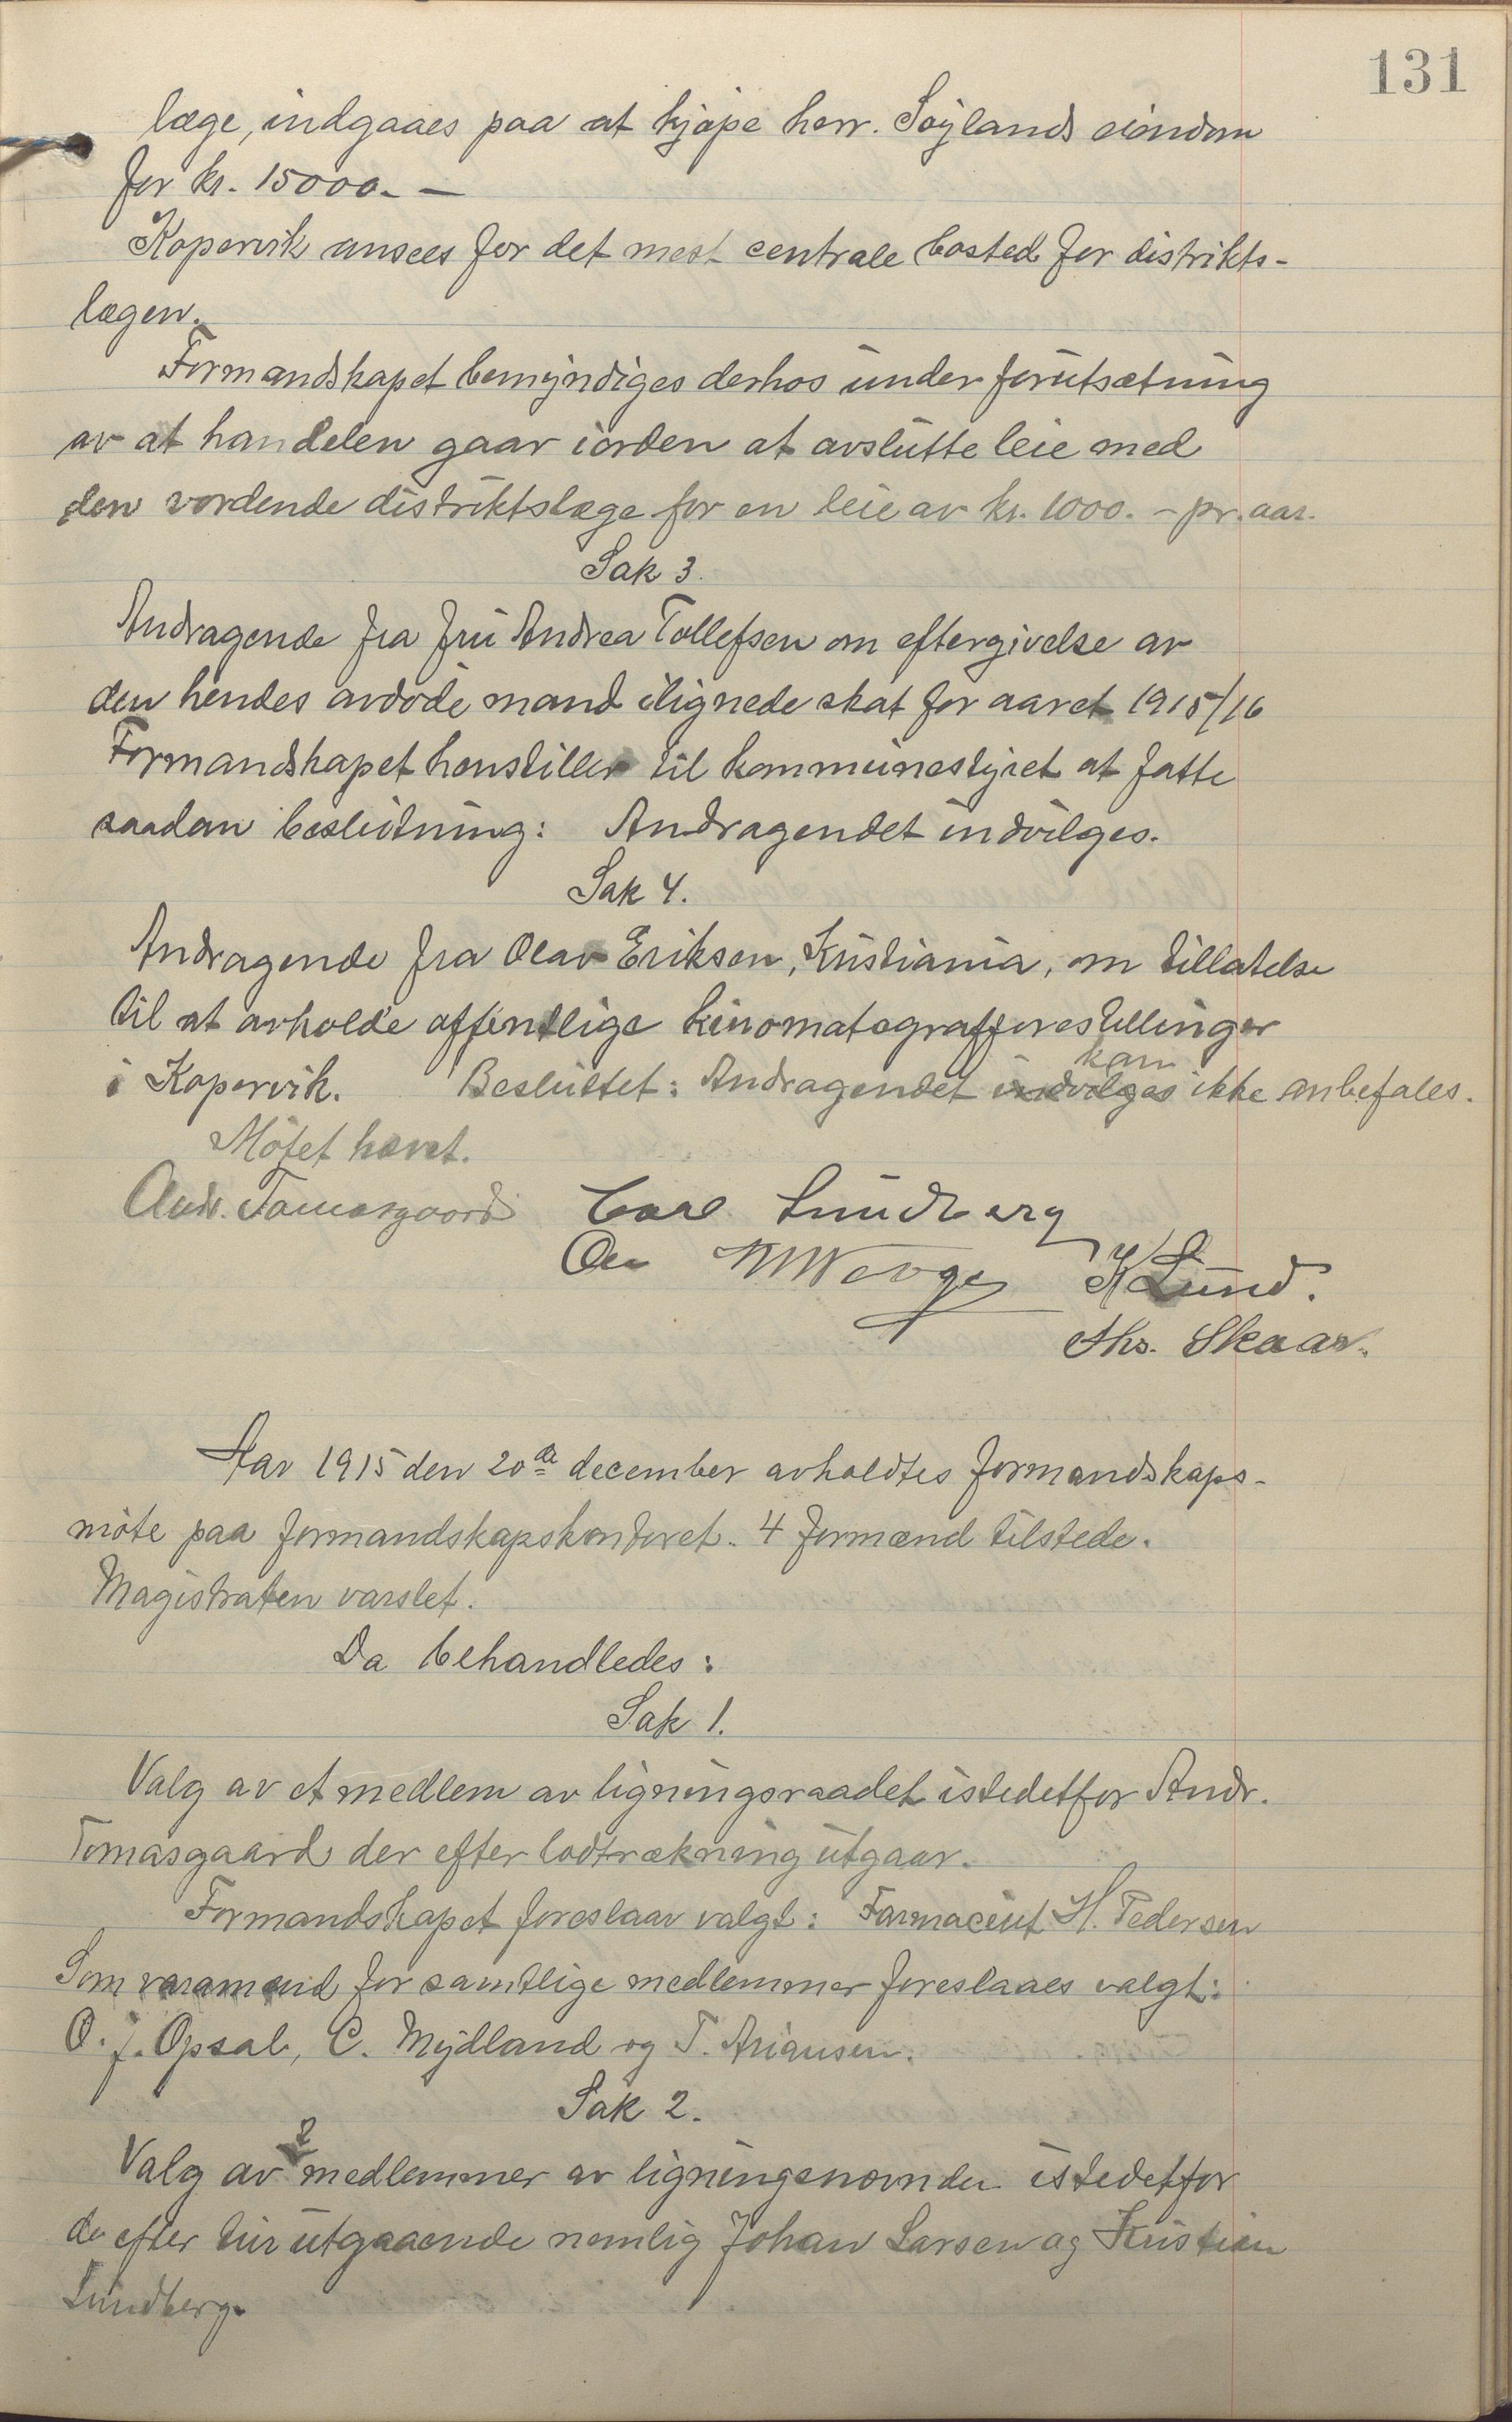 131
læge, indgaaes paa at kjøpe herr. Søylands eiendom
for kr. 15000.—
Kopervik ansees for det mest centrale bosted for distrikts-
lægen.
Formandskapet bemyndiges derhos under forutsætning
av at handelen gaar iorden at avslutte leie med
den vordende distriktslæge for en leie av kr. 1000.- pr. aar.
Sak 3.
Andragende fra fru Andrea Tollefsen om eftergivelse av
den hendes avdøde mand ilignede skat for aaret 1915/16
Formandskapet henstiller til kommunestyret at fatte
saadan beslutning: Andragendet indvilges.
Sak 4.
Andragende fra Olav Eriksen, Kristiania, om tillatelse
til at avholde offentlige kinomatografforestillinger
i Kopervik. Besluttet: Andragendet indvilges kan ikke anbefales.
Møtet hævet.
Andr. Tomasgaard Carl Lundberg
K Lund.
Ths. Skaar.
Aar 1915 den 20de december avholdtes formandskaps-
møte paa formandskapskontoret. 4 formænd tilstede.
Magistraten varslet.
Da behandledes:
Sak 1.
Valg av et medlem av ligningsraadet istedetfor Andr.
Tomasgaard der efter lodtrækning utgaar.
Formandskapet foreslaar valgt: Farmaceut H. Pedersen
Som varamænd for samtlige medlemmer foreslaaes valgt:
O. J. Opsal, C. Mydland og T. Ariansen.
Sak 2.
Valg av 2 medlemmer av ligningsnævnden istedetfor
de efter tur utgaaende nemlig Johan Larsen og Kristian
Lundberg.